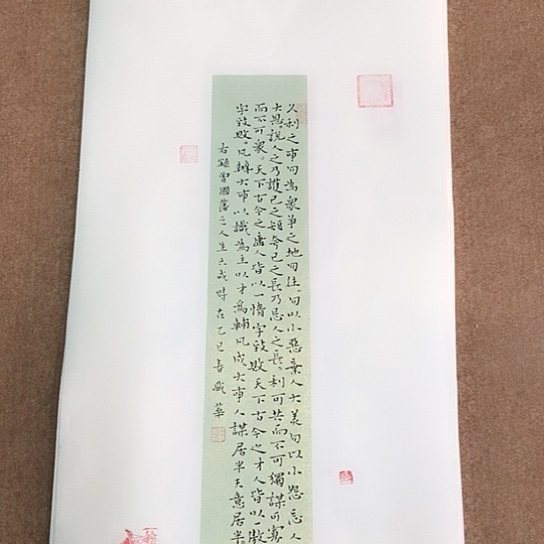 久利之事勿為衆争之地勿往勿以小惡棄人大美勿以小怨忘人
大恩説人之乃護己之短夸己之長乃忌人之長。利可共而不可獨謀可寡
而不可衆。天下古今之庸人皆以一惰字致敗天下古今之才人皆以一傲
字致敗。凡辦大事以識為主以才為輔凡成大事人謀居半天意居半
右錄曾國藩之人生六戒時在乙巳春華